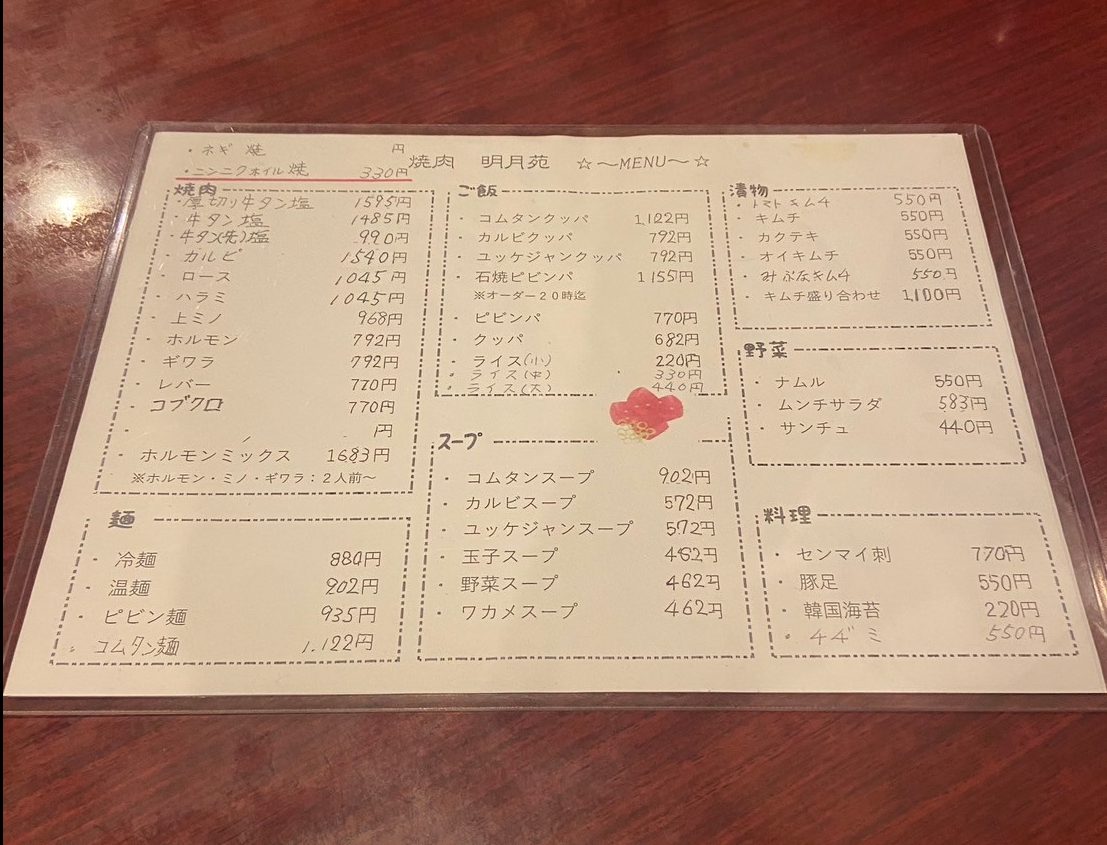 ・ネギ焼 円
・ニンニクオイル焼 330円
焼肉 明月苑 ☆～MENU～☆
焼肉
・厚切り牛タン塩 1595円
・牛タン塩 1485円
・牛タン(先)塩 990円
・カルビ 1540円
・ロース 1045円
・ハラミ 1045円
・上ミノ 968円
・ホルモン 792円
・ギワラ 792円
・レバー 770円
・コブクロ 770円
・ 円
・ホルモンミックス 1683円
※ホルモン・ミノ・ギワラ：２人前～
麺
・冷麺 880円
・温麺 902円
・ピビン麺 935円
・コムタン麺 1.122円
ご飯
・コムタンクッパ 1,122円
・カルビクッパ 792円
・ユッケジャンクッパ 792円
・石焼ピビンパ 1155円
※オーダー２０時迄
・ピビンパ 770円
・クッパ 682円
・ライス(小) 220円
・ライス(中) 330円
・ライス(大) 440円
スープ
・コムタンスープ 902円
・カルビスープ 572円
・ユッケジャンスープ 572円
・玉子スープ 462円
・野菜スープ 462円
・ワカメスープ 462円
漬物
・トマトキムチ 550円
・キムチ 550円
・カクテキ 550円
・オイキムチ 550円
・みぶなキムチ 550円
・キムチ盛り合わせ 1,100円
野菜
・ナムル 550円
・ムンチサラダ 583円
・サンチュ 440円
料理
・センマイ刺 770円
・豚足 550円
・韓国海苔 220円
・チヂミ 550円